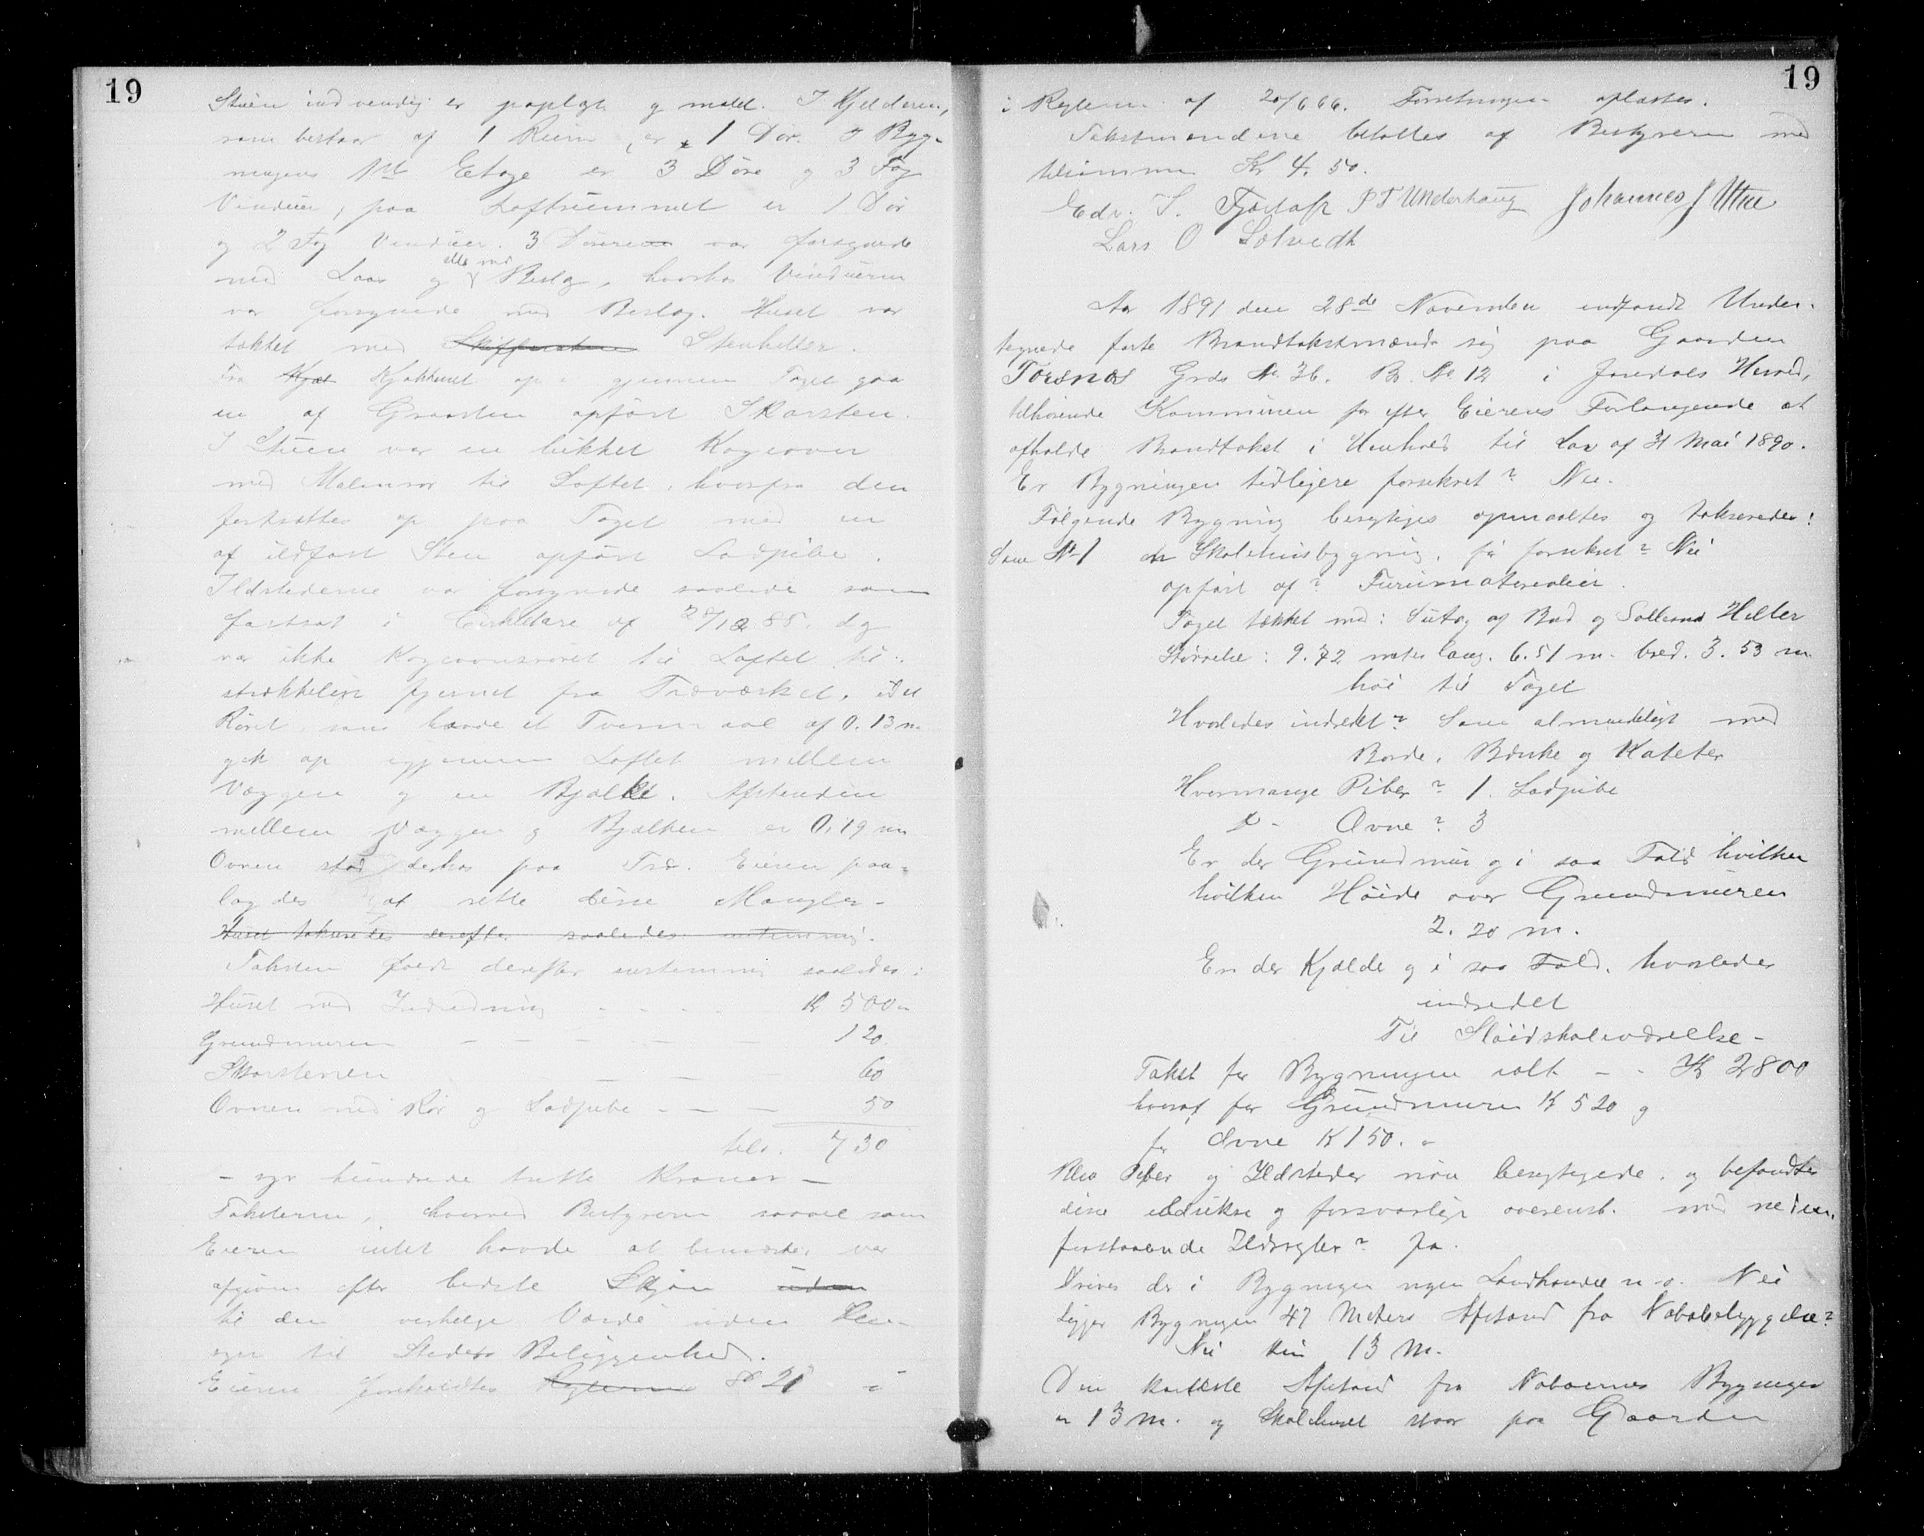 19
Stuen indvendig er paplagt og malet. I Kjelderen,
som bestaar af 1 Rum, er 1 Dør. I Byg-
ningens 1ste Etage er 3 Døre og 3 Fag
Vinduer, paa Loftrummet er 1 Dør
og 2 Fag Vinduer. 3 Dørene var forsynede
med Laas og Beslag, hvorhos Vinduerne
var forsynede med Beslag. Huset var
tækket med Stenheller.
Fra Kjøkkenet op i gjennem Taget gaar
en af Graasten opført Skorsten
I Stuen var en lukket Kogeovn
med Malmrør til Loftet, hvorfra den
fortsættes op paa Taget med en
af ildfast Sten opført Ladpibe.
Ildstederne var forsynede saaledes som
fastsat i Cirkulære af 28/12 85. dog
var ikke Kogeovnsrøret til Loftet til-
strækkelig fjernet fra Træværket, idet
Røret, som havde et Tvermaal af 0.13 m
gik op igjennem Loftet mellem
Væggen og en Bjælke. Afstanden
mellem Væggen og Bjælken er 0,19 m
Ovnen stod derhos paa Træ. Eieren paa-
lagdes at rette disse Mangler-
Huset takseredes derefter saaledes
Taksten skede derefter enstemmig saaledes:
Huset med Indredning - - - - Kr 500 -
Grundmuren - - - - - - 120
Skorstenen - - - 60
Ovnen med Rør og Ladpibe - - - 50
tils. 730
- syv hundrede trette Kroner -
Taksterne, hvorved Bestyreren saavel som
Eieren intet havde at bemærke, var
afgivne efter bedste Skjøn uden
til den virkelige Værdi uden Hen-
syn til Stedets Beliggenhed.
Eieren foreholdtes Reglerne § 21 i
19
i Reglerne af 20/6 66. Forretningen oplæstes.
Takstmændene betaltes af Bestyreren med
tilsammen Kr 4.50.
Edv. S. P T Underhaug Johannes J Utne
Lars O Solvedt
Aar 1891 den 28de November indfandt Under-
tegnede faste Brandtakstmænd sig paa Gaarden
Torsnes Grds No 36. Br. No 12 i Jondals Herred,
tilhørende Kommunen for efter Eierens Forlangende at
afholde Brandtakst i Henhold til Lov af 31 Mai 1890.
Er Bygningen tidligere forsikret? Nei.
Følgende Bygning besigtiges opmaaltes og takseredes:
Som No 1 en Skolehusbygning, før forsikret? Nei
opført af? Furumaterialier.
Taget tækket med: Sutag af Bord og Heller
Størrelse: 9.72 meter lang. 6.51 m. bred. 3.53 m
høi til Taget
Hvorledes indredet? Som almindeligt med
Borde, Bænke og Kateter
Hvormange Piber? 1. Ladpibe
D- Ovne? 3
Er der Grundmur og i saa Fald hvilken
hvilken Høide over Grundmuren
2.20 m.
Er der Kjælder og i saa Fald, hvorledes
indredet
Til Sløidskoleværelse-
Takst for Bygningen ialt - - Kr 2800
hvoraf for Grundmuren Kr 520 og
for Ovne Kr 150. -
Blev Piber og Ildsteder nøie besigtigede, og befandtes
disse ildsikre og forsvarlige overenst. med neden-
forstaaende Ildsregler? Ja.
Drives der i Bygningen nogen Landhandel n.o. Nei
Ligger Bygningen 47 Meters Afstand fra Nabobebyggelse?
Nei kun 13 M.
Den korteste Afstand fra Naboernes Bygninger
er 13 M. og Skolehuset staar paa Gaarden